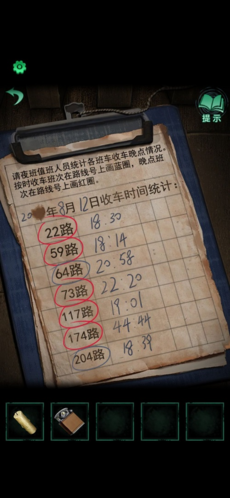 提示
请夜班值班人员统计各班车收车晚点情况。
按时收车班次在路线号上画蓝圈，晚点班
次在路线号上画红圈。
年8月12日收车时间统计：
22路 18:30
59路 18:14
64路 20:58
73路 22:20
117路 19:01
174路 44:44
204路 18:39